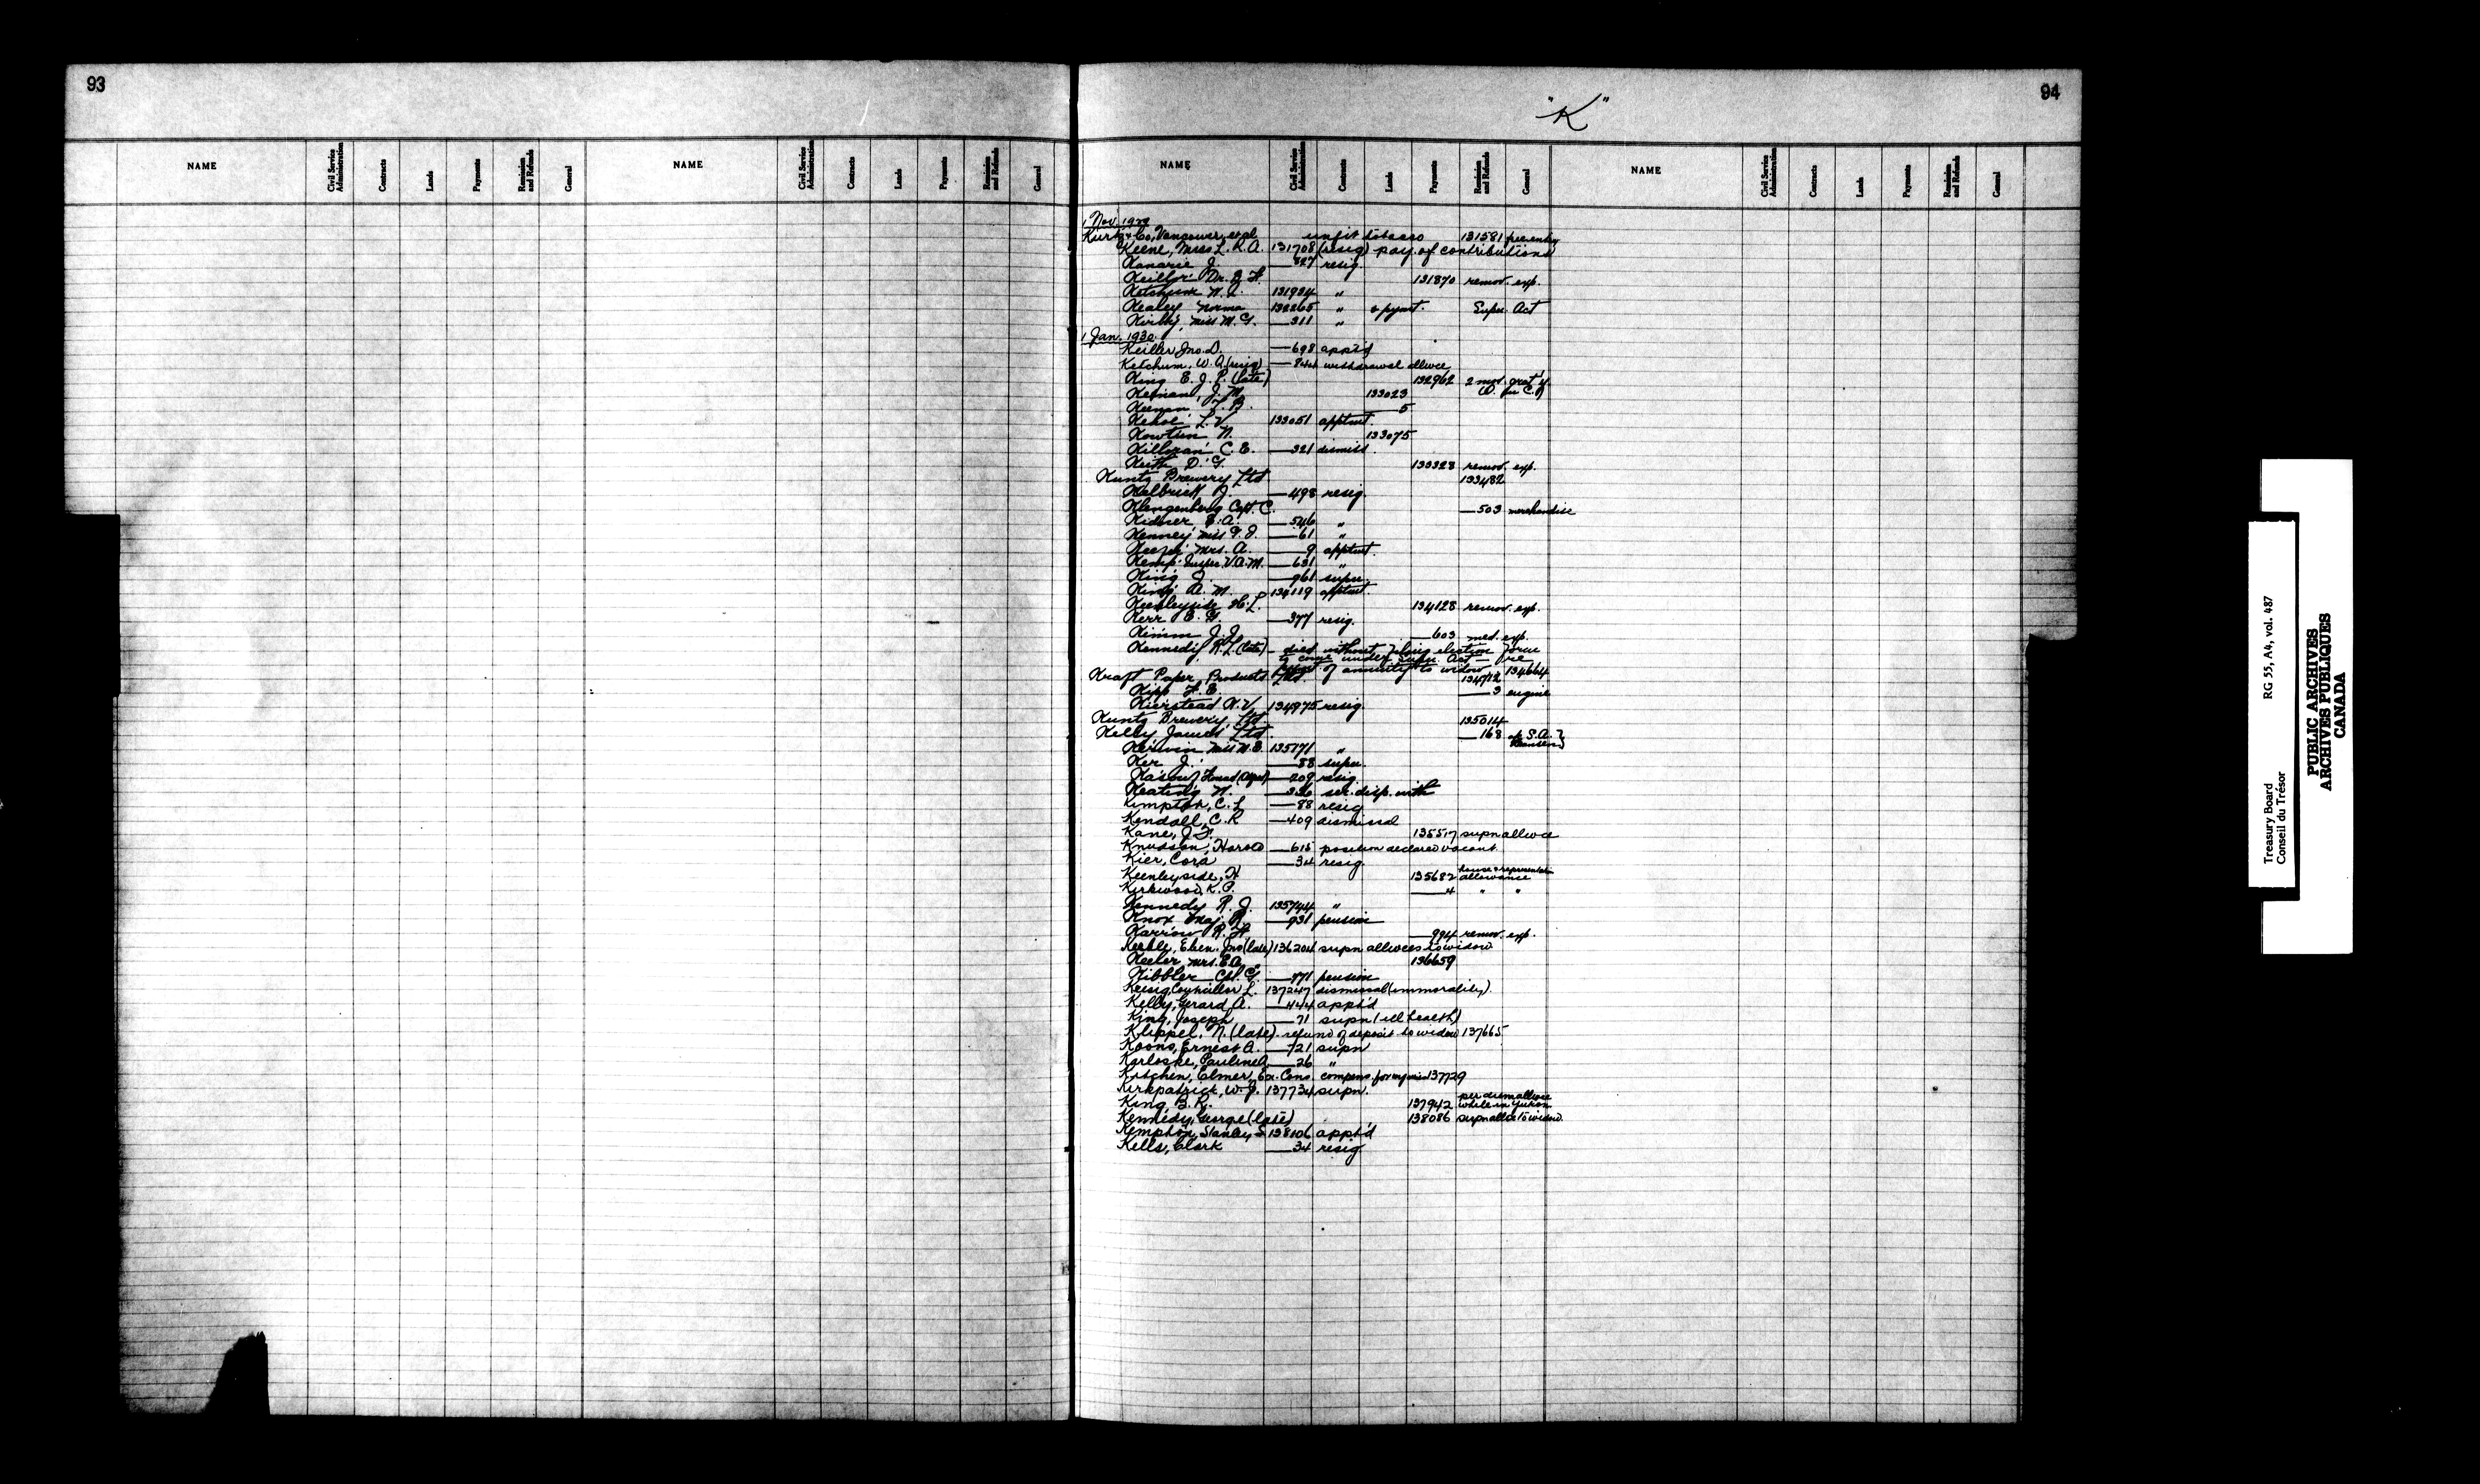 93
94
"K"
NAME Civil Service Administration Contracts Lands Payments Remission and Refunds General NAME Civil Service Administration Contracts Lands Payments Remission and Refunds General
NAME Civil Service Administration Contracts Lands Payments Remission and Refunds General NAME Civil Service Administration Contracts Lands Payments Remission and Refunds General
1 Nov. 1929
Kurtz & Co, Vancouver, et al unfit tobacco 131581 free entry
Keene, Miss L. R. A. 131708 (resig) pay. of contributions
Kanarie J. — 827 resig.
Keillor Dr. 131870 remov. exp.
Ketchum W. 131934 "
Kealey Norma 132265 " & pymt. Supn. Act
Kirby, Miss M. G. — 311 "
1 Jan. 1930
Keiller Jno. D. — 698 app't'd
Ketchum, W. Q. (resig) — 844 withdrawal allwce
King E. J. P. (late) 132962 2 mos. grat'y
Keenan, J. M. 133023
Keenan — 5
Kehoe L. V. 133051 apptmt.
Kowtun N. 133075
Killoran C. E. — 321 dismiss.
Keith D. G. 133328 remov. exp.
Kuntz Brewery Ltd 133482
Kelbrick J. — 498 resig.
Klengenberg Capt. C. — 503 merchandise
Kidner, E. A. — 546 "
Kenney Miss G. J. — 61 "
Mrs. A. — 9 apptmt.
Kemp Insper. V.A.M. — 631 "
King J. — 961 supn.
King A. M. 134119 apptmt.
Keenleyside H. L. 134128 remov. exp.
Kerr E. G. — 377 resig.
Kimm J. J. — 603 med. exp.
Kennedy R. L. (late) — died without filing election form
to come under Supn. Act — re
pymt. of annuity to widow 134664
Kraft Paper Products Ltd. 134712
Kipp F. E. — 3 engine
Kierstead W. V. 134975 resig.
Kuntz Brewery Ltd 135014
Kelly James Ltd — 168 of S.A.
Kerwin Miss N. E. 135171 "
Ker J. — 88 supn.
— 209 resig.
Keating W. — 336 ser. disp. with
Kimpton, C. L. — 88 resig
Kendall, C. R — 409 dismissal
Kane, J. F. 135517 supn allwce
Knudson, Harold — 615 position declared vacant.
Kier, Cora — 34 resig.
Keenleyside, H 135682 house & representation allowance
Kirkwood, K. P. — 4 " "
Kennedy R. J. 135744 "
Knox Maj. R. — 931 pension
Karrow R. H. — 994 remov. exp.
Keeble, Eben. Jno (late) 136204 supn allwces to widow
Keeler Mrs. E. A. 136659
Kibbler Cpl. G. — 771 pension
Councillor L. 137247 dismissal (immorality)
Kelly, Gerard A. — 444 appt'd
King, Joseph — 71 supn (ill health)
Klippel, N. (late) refund of deposit to widow 137665
Koons, Ernest A. — 721 supn
Karloske, Pauline A. — 26 "
Kitchen, Elmer, Ex. Cons. compens. for injuries 137729
Kirkpatrick, W. J. 137734 supn.
King B. R. 137942 per diem allwce while in Yukon
Kennedy, George (late) 138086 supn allce to widow
Kempton, Stanley S. 138106 appt'd
Kells, Clark — 34 resig.
Treasury Board RG 55, A4, vol. 487
Conseil du Trésor
PUBLIC ARCHIVES
ARCHIVES PUBLIQUES
CANADA